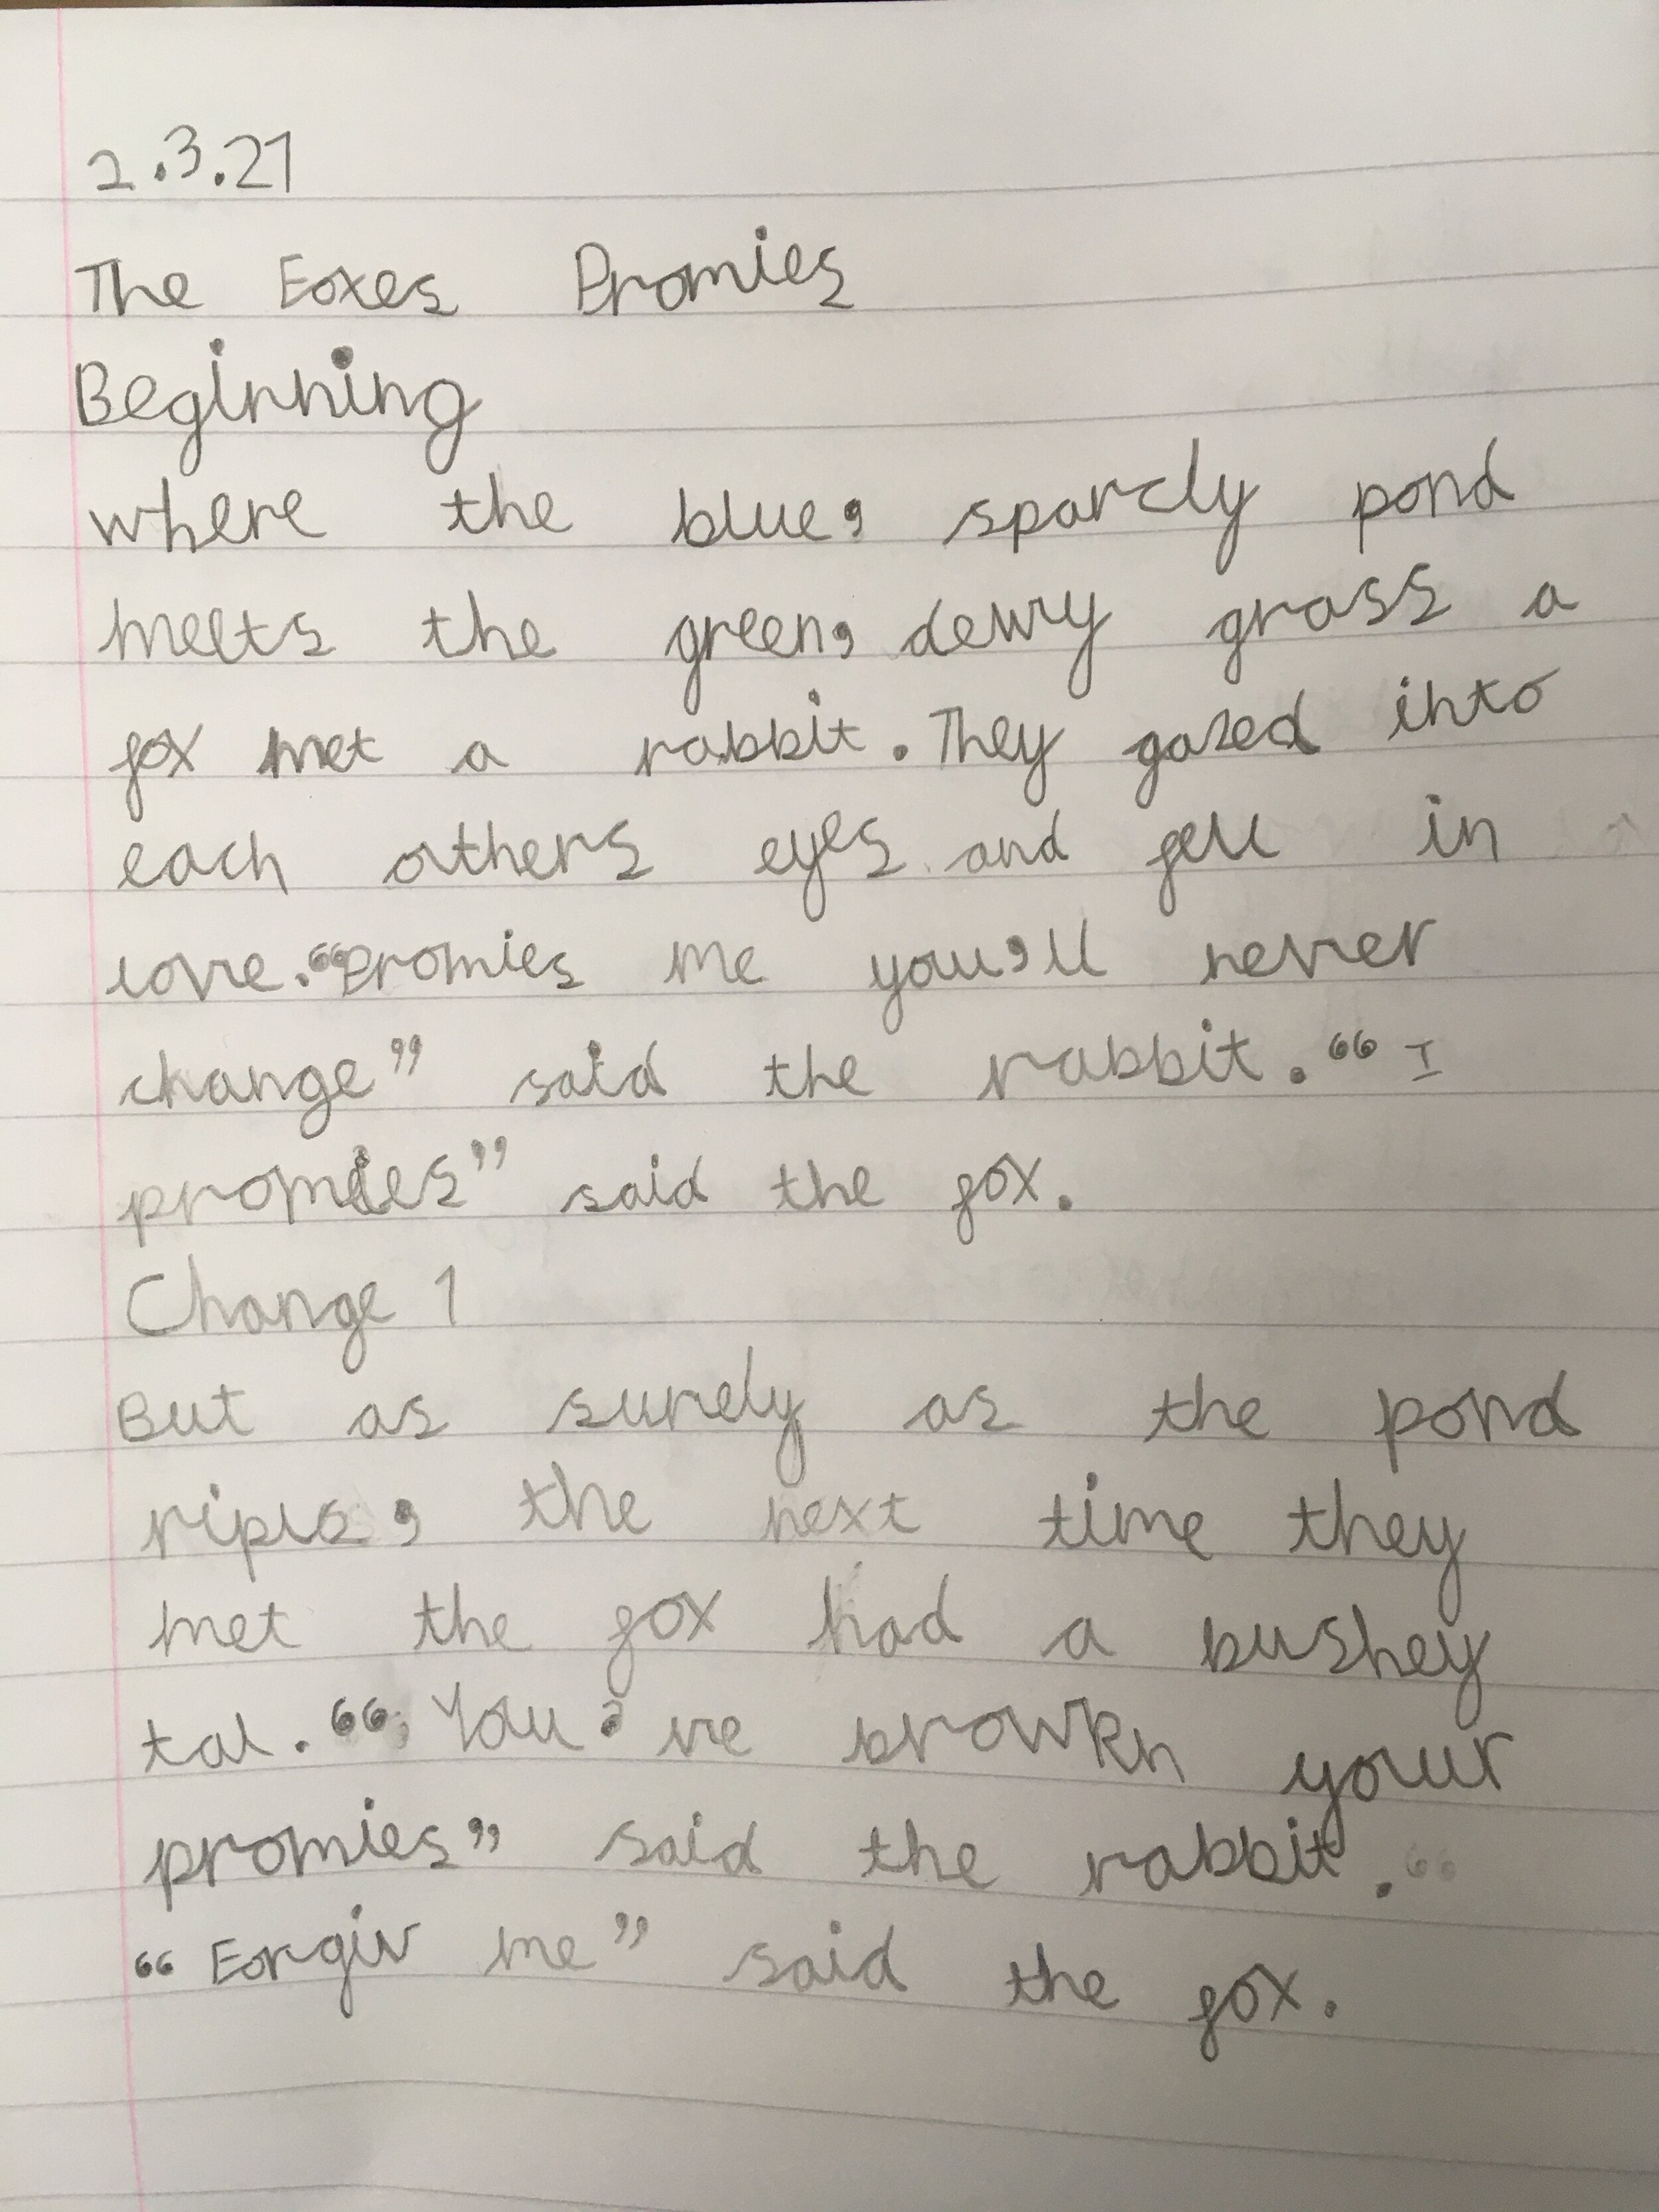 2.3.21
The Foxes Promies
Beginning
where the blue, sparcly pond
meets the green, dewy grass a
fox met a rabbit. They gazed into
each others eyes and fell in
love. "Promies me you'll never
change" said the rabbit. "I
promies" said the fox.
Change 1
But as surely as the pond
ripls, the next time they
met the fox had a bushey
tal. "You've browkn your
promies" said the rabbit.
"Forgiv me" said the fox.